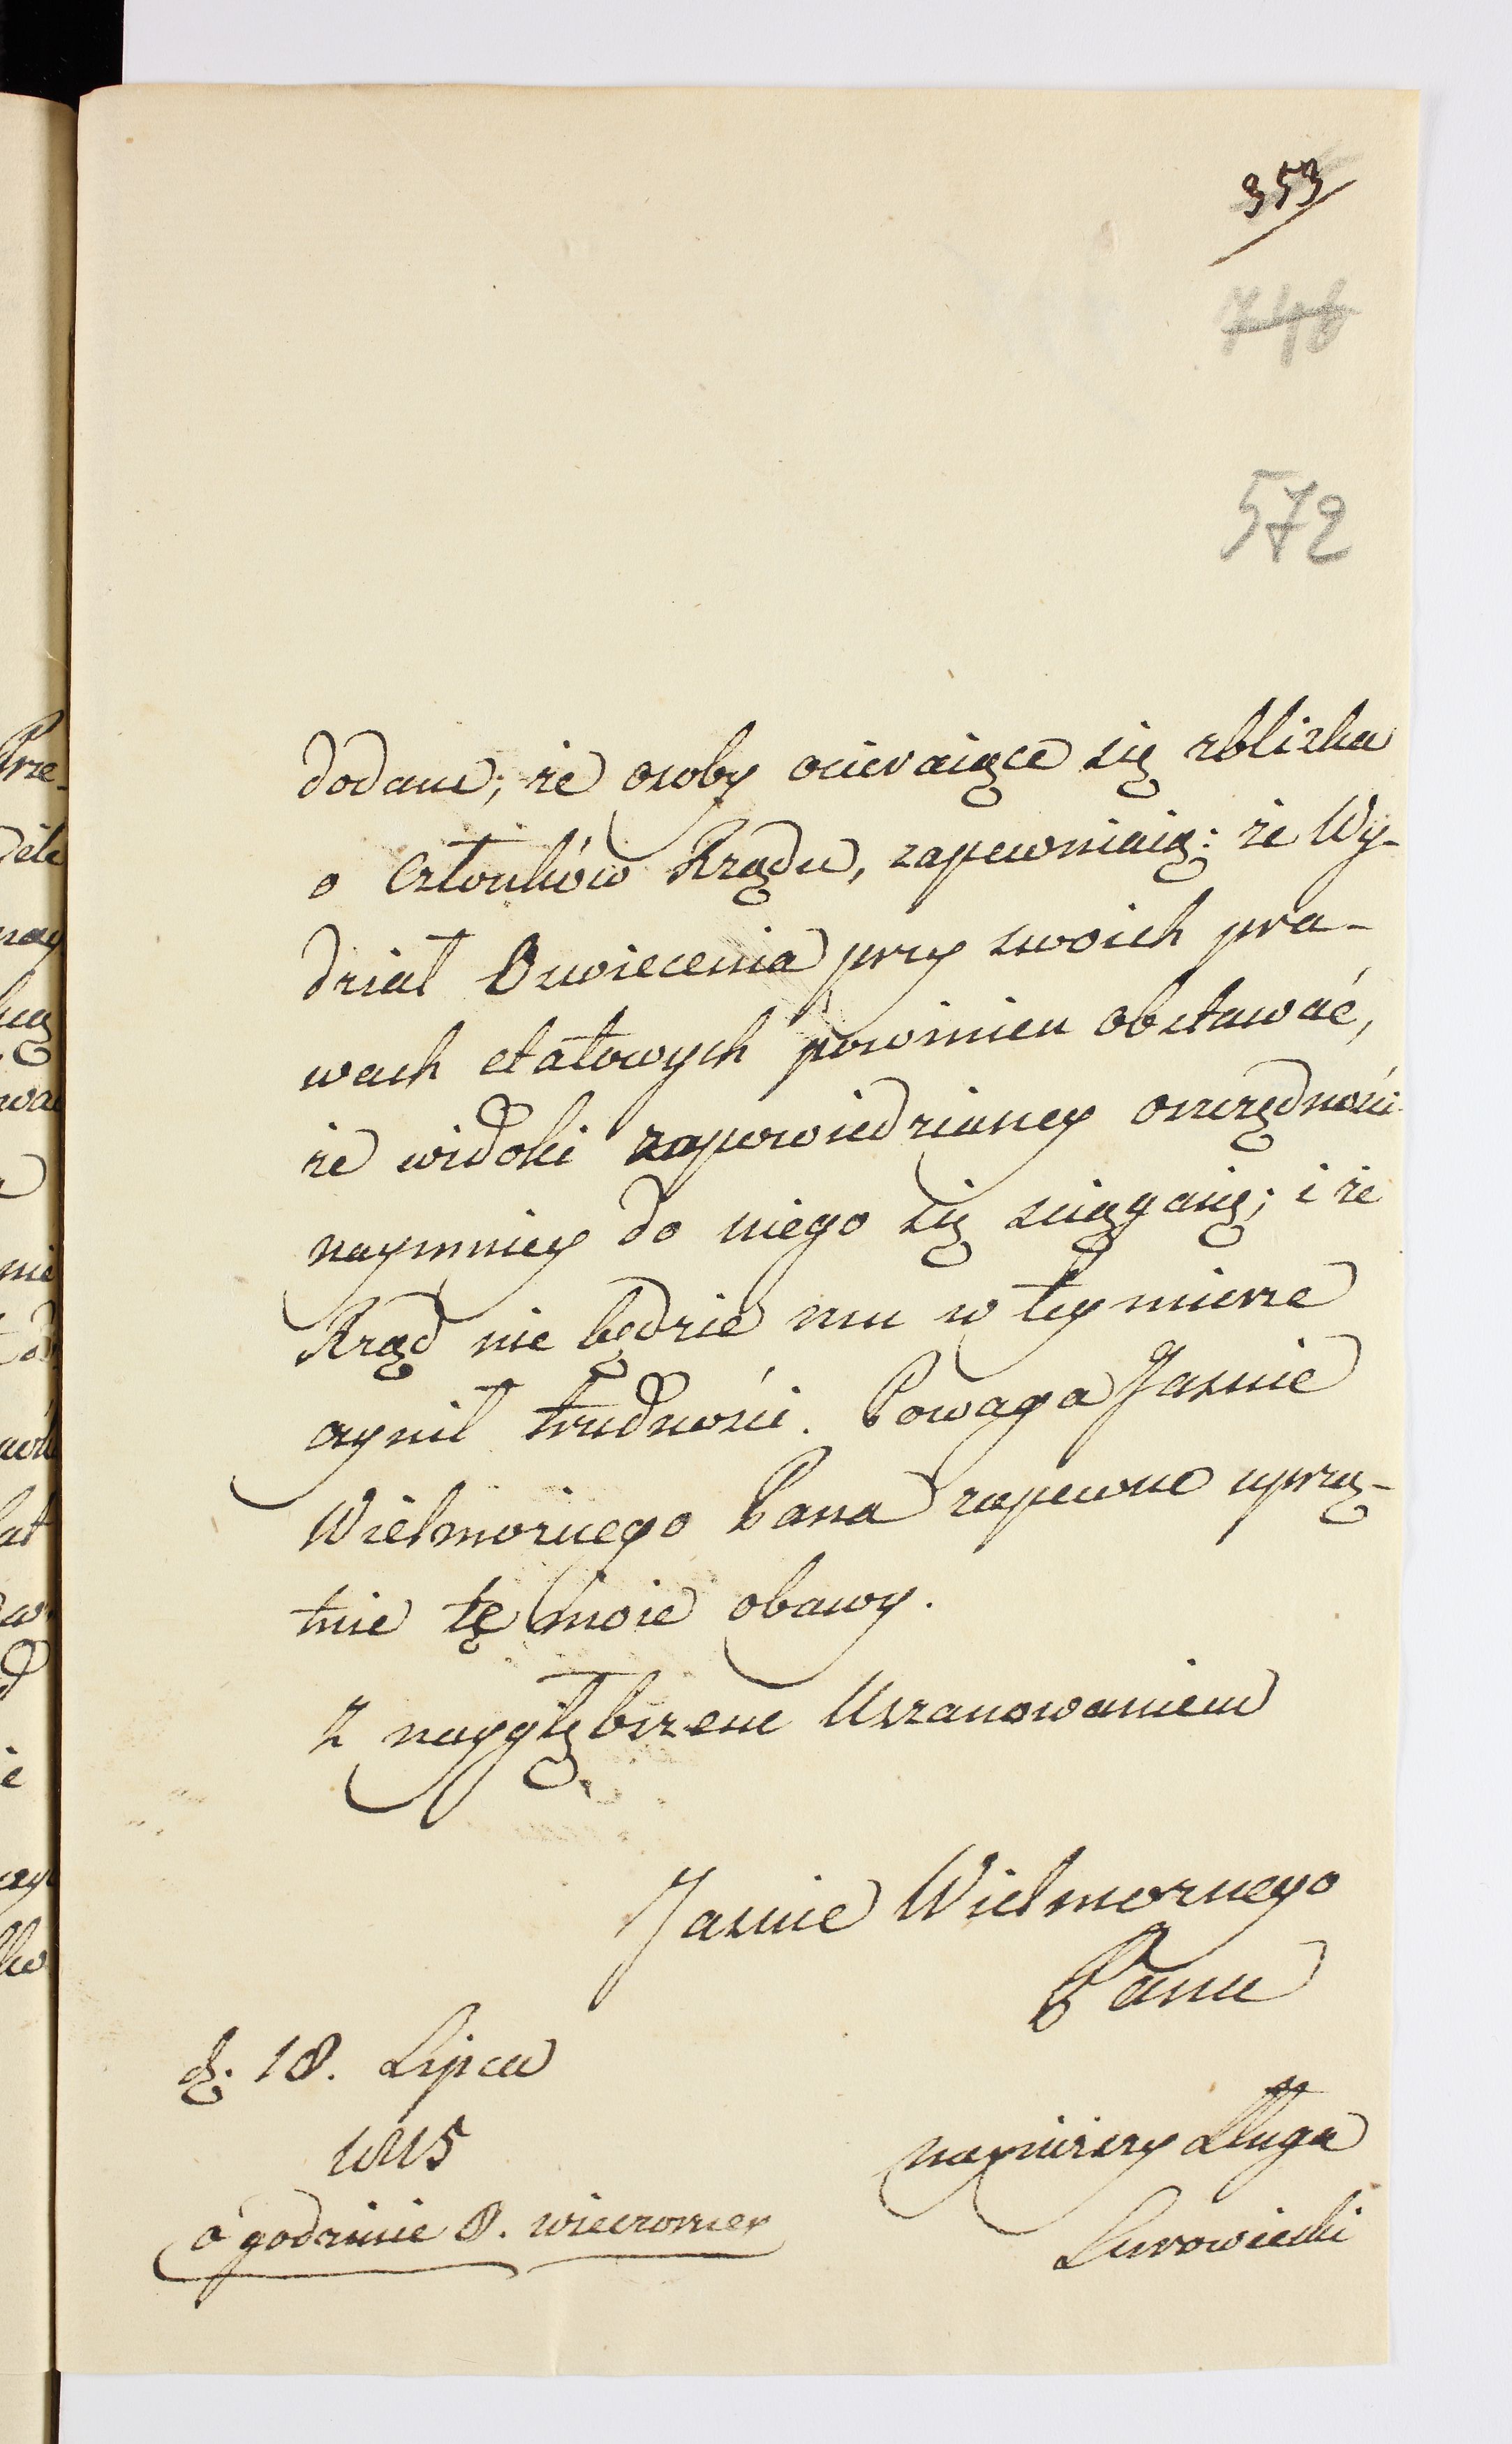 353
746
572
dodam; że osoby ocieraiące się zbliska
o Członków Rządu, zapewniaią: że Wy-
dział Oswiecenia przy swoich pra-
wach etatowych powinien obstawać,
że widoki zapowiedzianey oszczędności
naymniey do niego się sciągaią; i że
Rząd nie będzie mu w tey mierze
czynił trudności. Powaga Jasnie
Wielmożnego Pana zapewne uprzą-
tnie tę moie obawy.
Z naygłębszem Uszanowaniem
Jasnie Wielmożnego
Pana
d. 18. Lipca
1815
o godzinie 8. wieczorney
nayniższy Sługa
Surowiecki